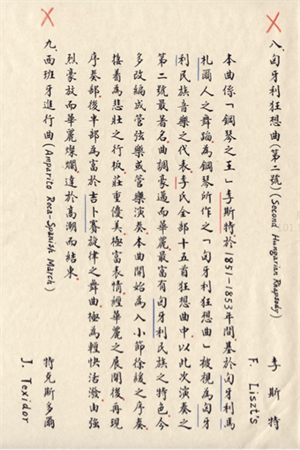 八、匈牙利狂想曲(第二號)(Second Hungarian Rhapsody) 李斯特
F. Liszt's
本曲係「鋼琴之王」李斯特於1851-1853年間基於匈牙利馬
札爾人之舞蹈為鋼琴所作之「匈牙利狂想曲」被視為匈牙
利民族音樂之代表,李氏全部十五首狂想曲中,以此次演奏之
第二號最著名,曲調豪邁而華麗,最富有匈牙利民族之特色,今
多改編成管弦樂或管樂演奏,本曲開始為八小節徐緩之序奏,
接着為悲壯之行板,莊重優美,極富表情,經華麗之展開後再現
序奏部,後半部為富於吉卜賽旋律之舞曲,極為輕快活潑,由強
烈豪放而華麗燦爛,達於高潮而結束。
九、西班牙進行曲(Amparito Roca-Spanish March) 特克斯多爾
J. Texidor